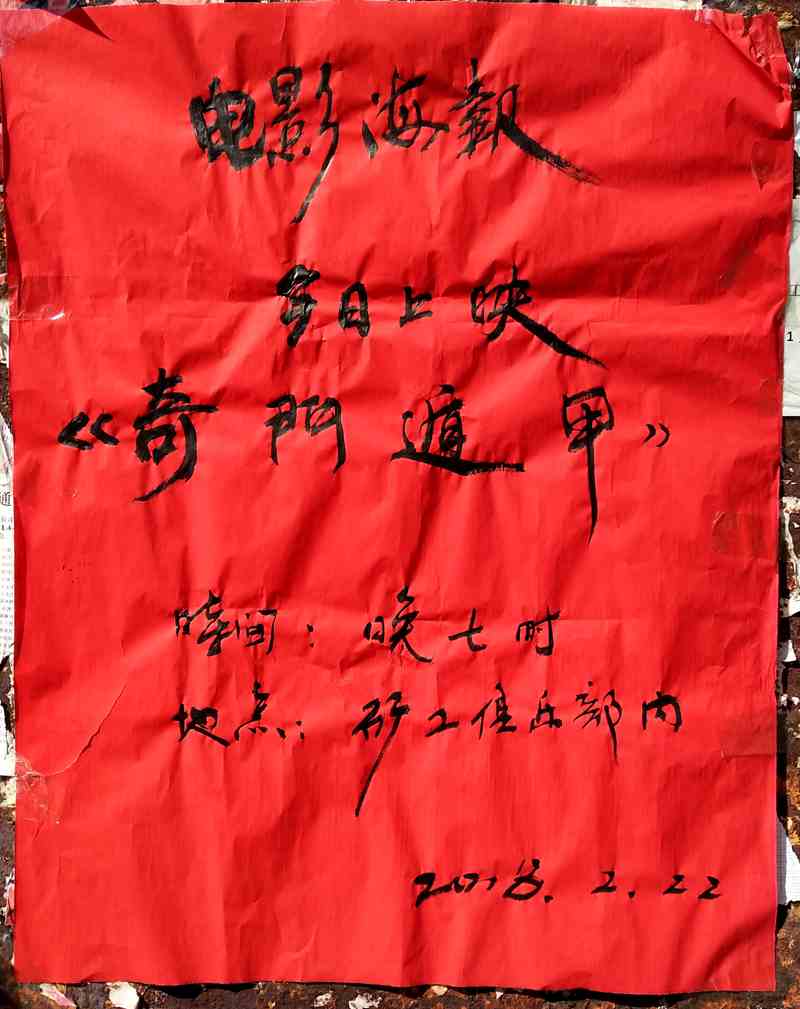 电影海報
今日上映
《奇門遁甲》
時间：晚七时
地点：矿工俱乐部内
2018.2.22